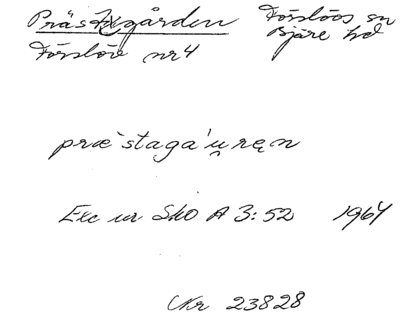 Prästgården Förslövs sn
Förslöv nr 4 Bjäre hd
præ`staga´u̯ręn
Exc ur SkO A 3:52 1964
Nr 23828